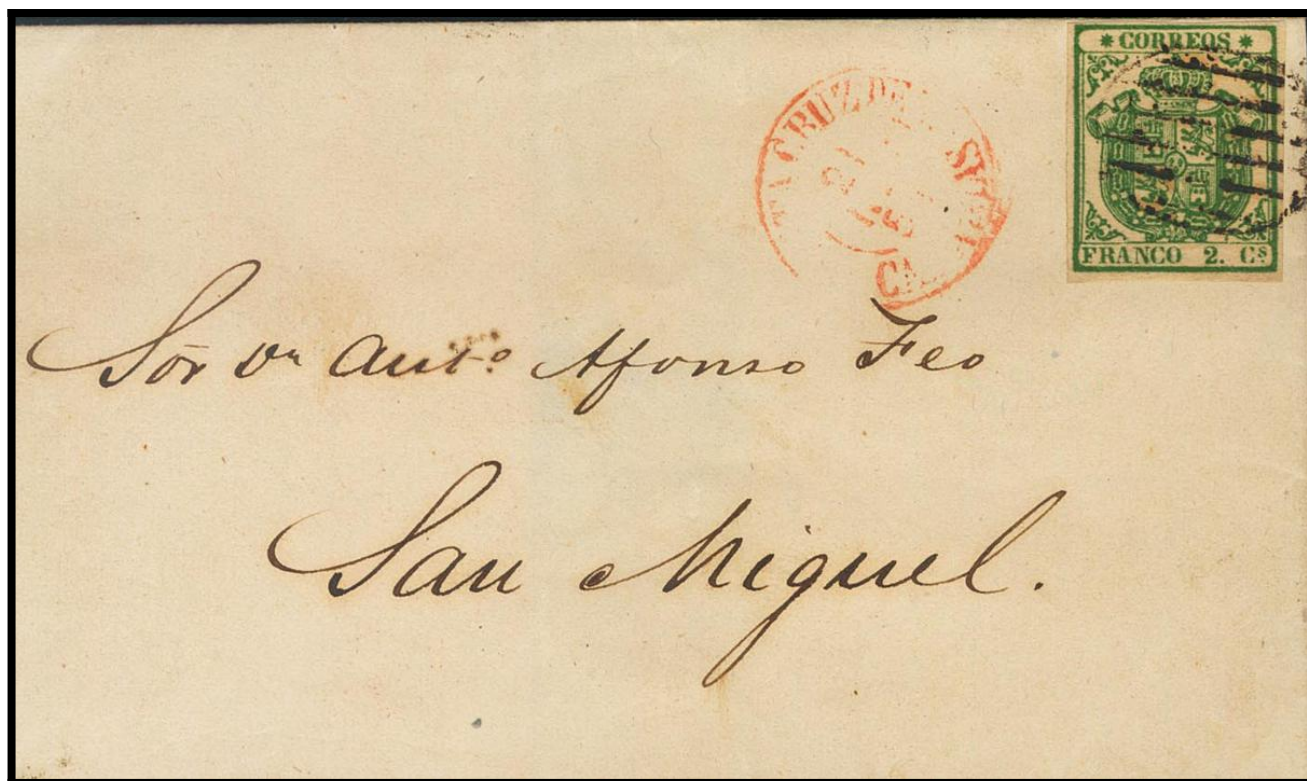 * CORREOS *
FRANCO 2. Cs
TA CRUZ DE
21
Sör Dn Anto Afonso Feo
San Miguel.